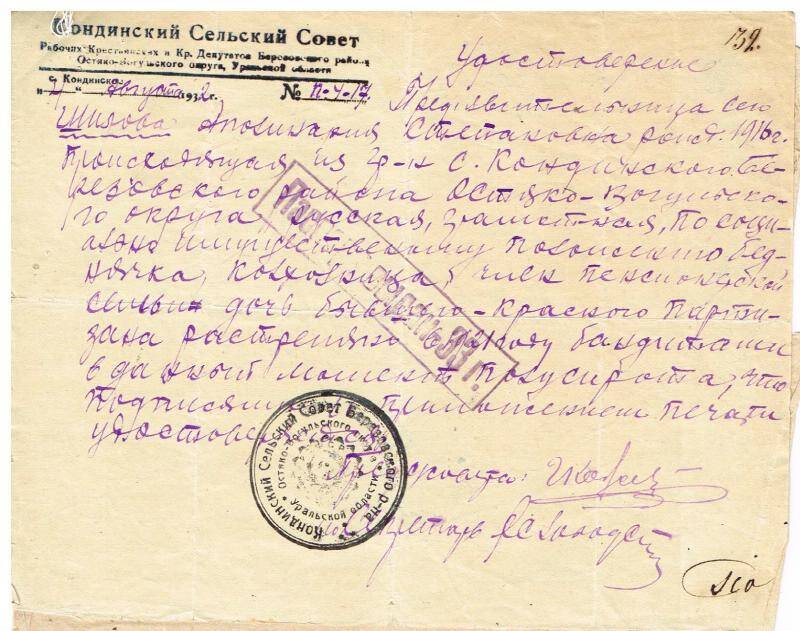 Кондинский Сельский Совет
Рабочих Крестьянских и Кр. Депутатов Березовского района
Остяко-Вогульского округа, Уральской области
с. Кондинское
" 4 " августа 1932 г.
№ П-4-17
139.
Удостоверение
Предъявительница сего
Шилова Апполинария Степановна рожд. 1916 г.
происходящая из гр-н с. Кондинского, Бе-
резовского района Остяко-Вогульско-
го округа русская, грамотная, по соци-
ально имущественному положению бед-
нячка, колхозница, член пенсионерской
семьи дочь бывшего - красного парти-
зана растрелян в 21 году бандитами
в данный момент полусирота, что
подписями и приложением печати
удостоверяется
Кондинский Сельский Совет Березовского р-на
Остяко-Вогульского округа
Уральской области
Секретарь